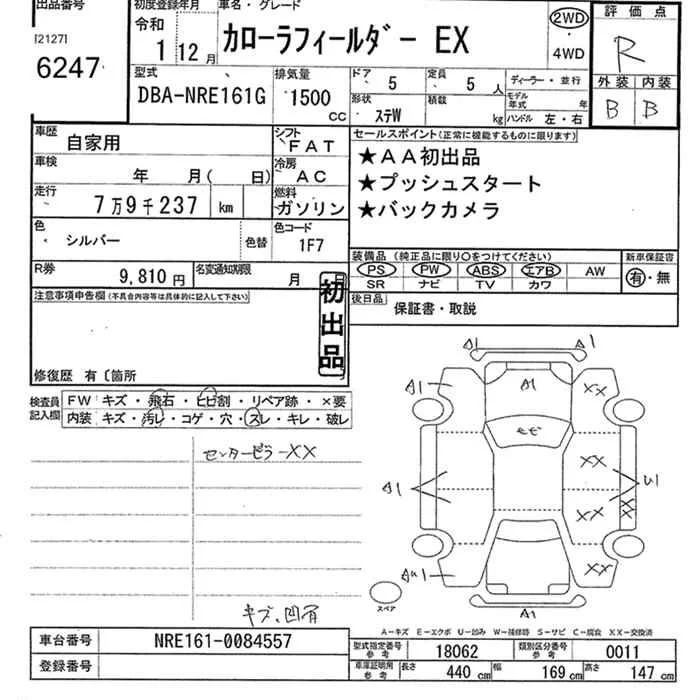 出品番号
[2127]
6247
初度登録年月
令和
1 12月
車名・グレード
カローラフィールダー EX
2WD
・
4WD
評価点
R
外装 内装
B B
型式
DBA-NRE161G
排気量
1500
cc
ドア
5
定員
5 人
形状
ステW
積載
kg
ディーラー・並行
モデル年式 年
ハンドル 左・右
車歴
自家用
シフト
FAT
車検
年 月( 日)
冷房
AC
走行
7万9千237 km
燃料
ガソリン
色
シルバー
色替
色コード
1F7
R券
9,810円
名変通知期限
月
セールスポイント(正常に機能するものに限ります)
★AA初出品
★プッシュスタート
★バックカメラ
装備品 (純正品に限り○をつけてください)
新車保証書
PS PW ABS エアB AW
SR ナビ TV カワ
有・無
後日品
保証書・取説
注意事項申告欄(不具合内容等は具体的に記入して下さい)
初出品
修復歴 有〔箇所
検査員記入欄
FW キズ・飛石・ヒビ割・リペア跡・×要
内装 キズ・汚レ・コゲ・穴・スレ・キレ・破レ
センターピラーXX
キズ、凹有
A1 A1
A1 A1 XX
モモ
XX
A1 U1
XX XX
AU1 XX
A1
スペア
A-キズ E-エクボ U-凹み W-補修跡 S-サビ C-腐食 XX-交換済
車台番号
NRE161-0084557
登録番号
型式指定番号参考
18062
類別区分番号参考
0011
車庫証明用参考
長さ 440 cm 幅 169 cm 高さ 147 cm